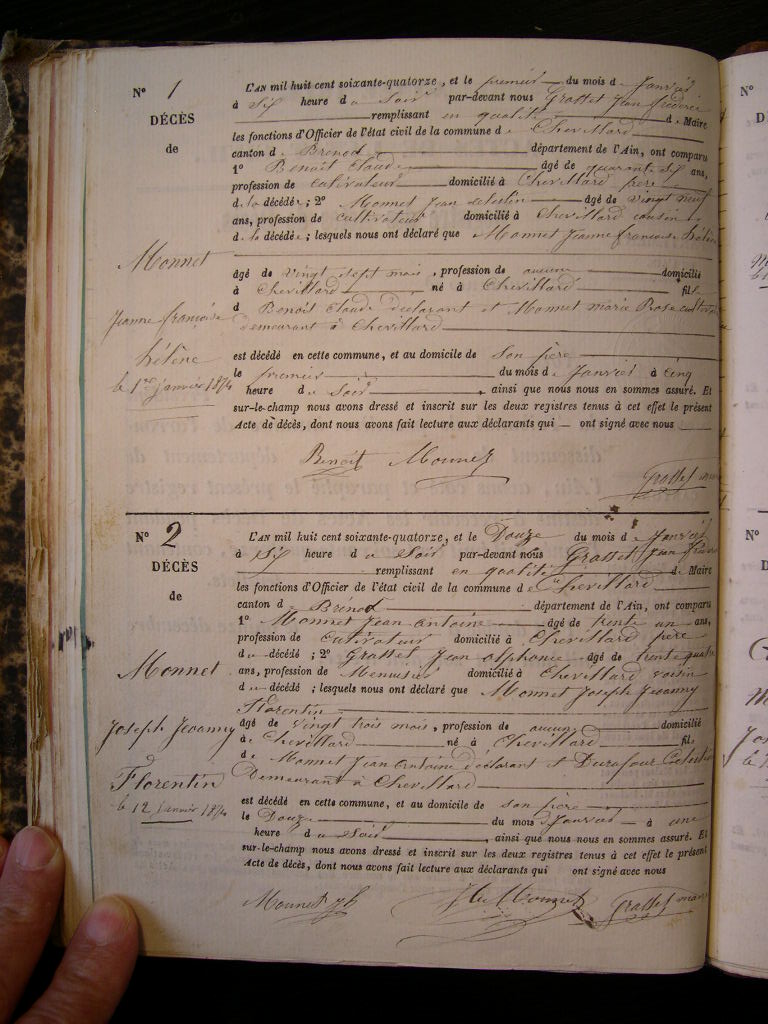 N° 1
DÉCÈS
de
Monnet
Jeanne françoise
hélène
le 1er janvier 1874
L'AN mil huit cent soixante-quatorze, et le premier du mois d Janvier
à Six heure d u Soir par-devant nous Grasset Jean frédéric
remplissant en qualité d e Maire
les fonctions d'Officier de l'état civil de la commune d e Chevillard
canton d e Brénod département de l'Ain, ont comparu
1° Benoit Claude âgé de quarante six ans,
profession de cultivateur domicilié à Chevillard père
d e la décédée ; 2° Monnet Jean celestin âgé de vingt neuf
ans, profession de cultivateur domicilié à Chevillard cousin
d e la décédée ; lesquels nous ont déclaré que Monnet Jeanne françoise hélène
âgé de vingt sept mois , profession de aucune domicilié
à Chevillard né à Chevillard fil
d Benoit Claude déclarant et Monnet marie Rose
demeurant à Chevillard
est décédé en cette commune, et au domicile de Son père
le premier du mois d Janvier à cinq
heure d u Soir , ainsi que nous nous en sommes assuré. Et
sur-le-champ nous avons dressé et inscrit sur les deux registres tenus à cet effet le présent
Acte de décès, dont nous avons fait lecture aux déclarants qui ont signé avec nous
Benoit Monnet
Grasset maire
N° 2
DÉCÈS
de
Monnet
Joseph Jeoanny
Florentin
le 12 Janvier 1874
L'AN mil huit cent soixante-quatorze, et le Douze du mois d Janvier
à Six heure d u Soir par-devant nous Grasset Jean
remplissant en qualité d e Maire
les fonctions d'Officier de l'état civil de la commune d e Chevillard
canton d e Brénod département de l'Ain, ont comparu
1° Monnet Jean Antoine âgé de trente un ans,
profession de Cultivateur domicilié à Chevillard père
d u décédé ; 2° Grasset Jean alphonse âgé de trente quatre
ans, profession de Menuisier domicilié à Chevillard voisin
d u décédé ; lesquels nous ont déclaré que Monnet Joseph Jeoanny
Florentin
âgé de vingt trois mois , profession de aucune domicilié
à Chevillard né à Chevillard fil
d e Monnet Jean Antoine déclarant et Dufour Celestine
Demeurant à Chevillard
est décédé en cette commune, et au domicile de son père
le Douze du mois d Janvier à une
heure d u Soir , ainsi que nous nous en sommes assuré. Et
sur-le-champ nous avons dressé et inscrit sur les deux registres tenus à cet effet le présent
Acte de décès, dont nous avons fait lecture aux déclarants qui ont signé avec nous
Monnet Grasset maire